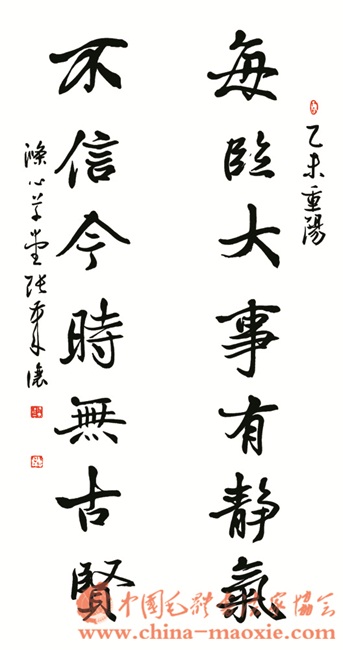 乙未重陽
每臨大事有静氣
不信今時無古賢
滌心草堂
中国毛體书法家協会
www.china-maoxie.com